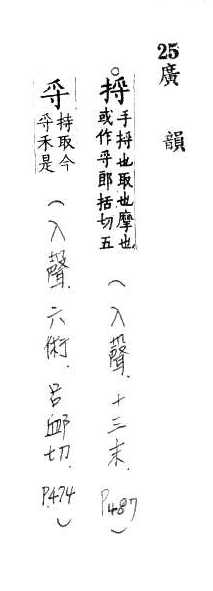 25廣韻
捋手捋也取也摩也
或作寽郎括切五
(入聲.十三末.P487)
寽持取今
寽禾是
(入聲.六術.呂卹切.P.474)